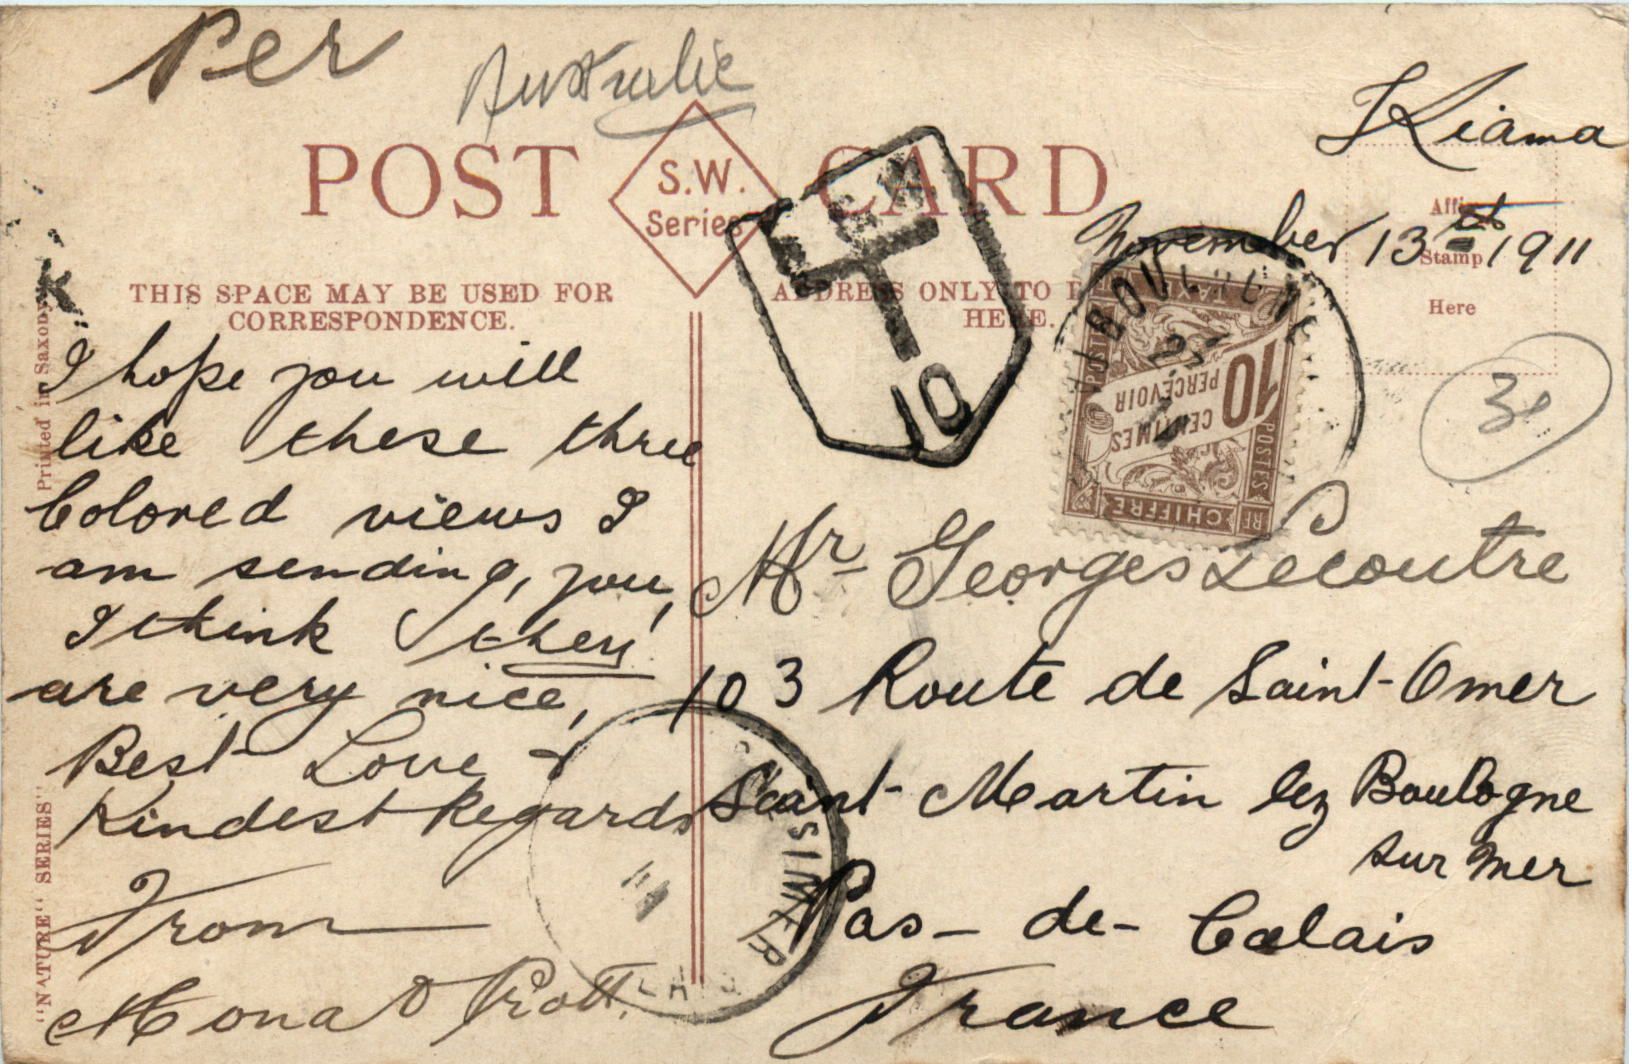 Per
Australie
Kiama
POST CARD
S.W.
Series
November 13th 1911
Stamp
Here
THIS SPACE MAY BE USED FOR
CORRESPONDENCE.
ADDRESS ONLY TO BE
HERE.
T
10
BOULOGNE
10
CENTIMES
PERCEVOIR
CHIFFRE
TAXE
POSTES
RF
I hope you will
like these three
Colored views I
am sending, you,
I think they
are very nice,
Best Love &
Kindest Regards
From
Mona
Mr Georges Lecoutre
103 Route de Saint-Omer
Saint-Martin lez Boulogne
sur mer
Pas-de-Calais
France
Printed in Saxony
"NATURE" SERIES"